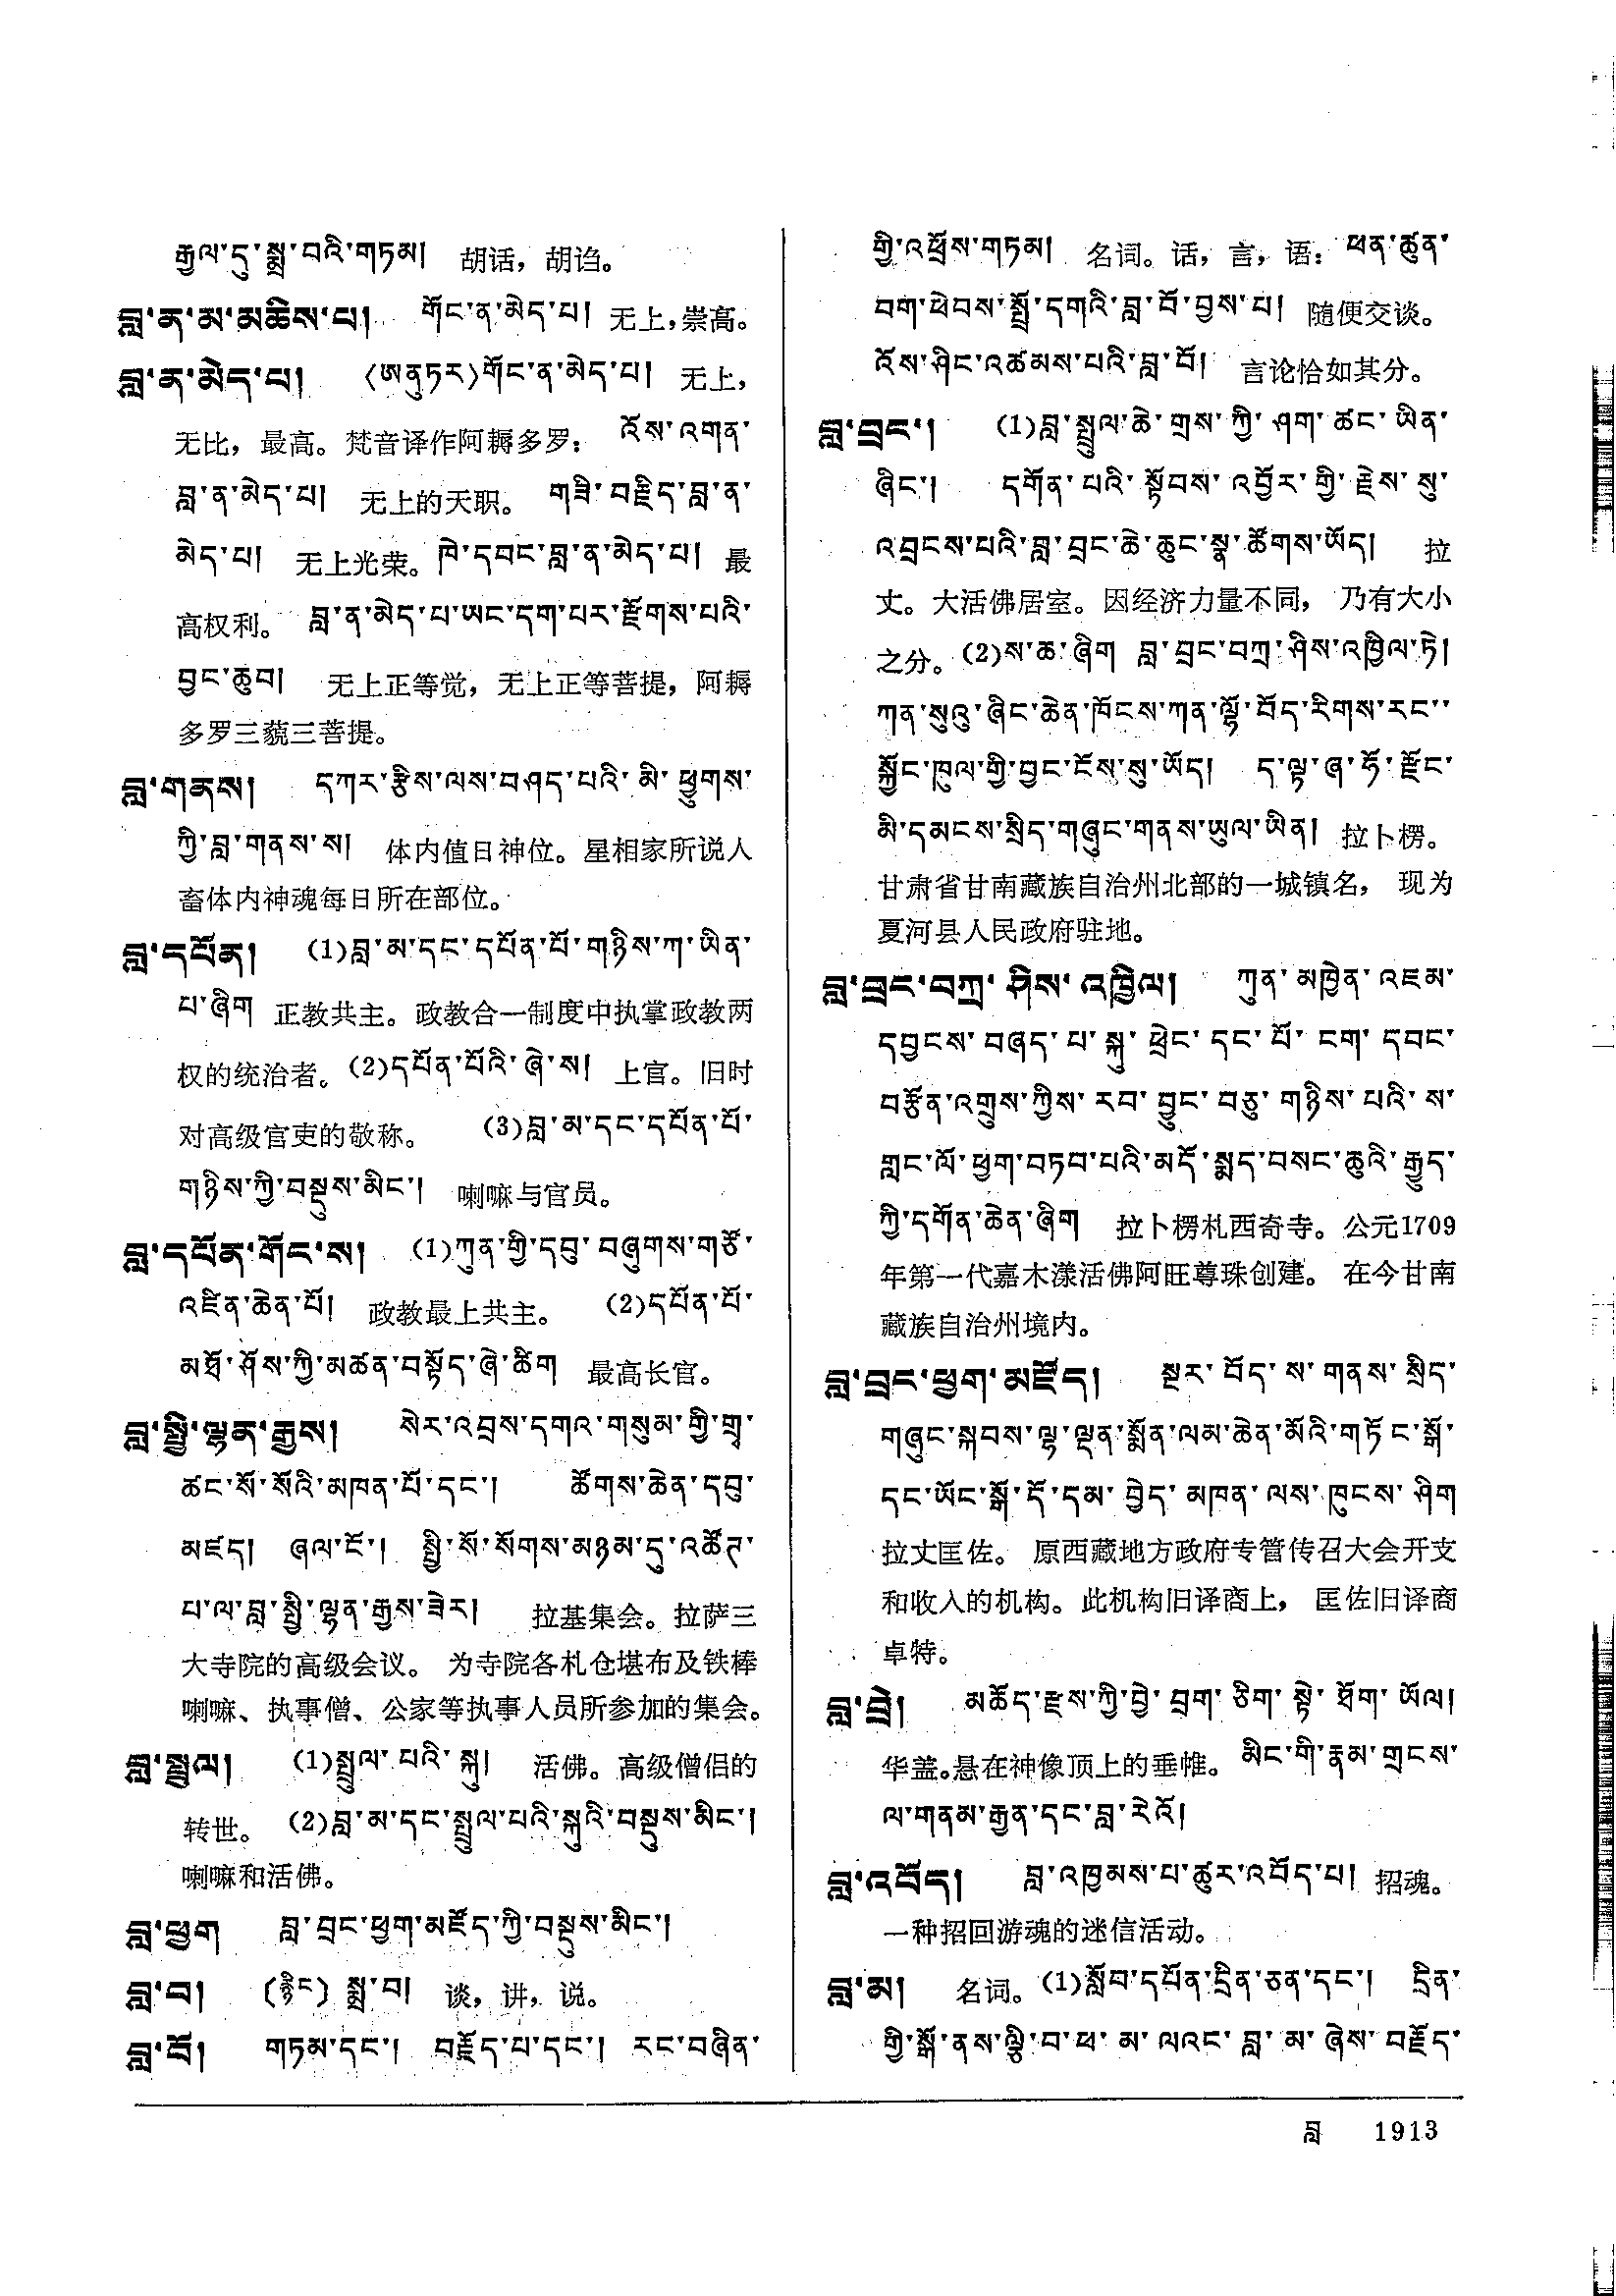 རྒྱལ་དུ་སྨྲ་བའི་གཏམ། 胡话，胡诌。
བླ་ན་མ་མཆིས་པ། གོང་ན་མེད་པ། 无上，崇高。
བླ་ན་མེད་པ། 〈ཨནུཏར〉གོང་ན་མེད་པ། 无上，
无比，最高。梵音译作阿耨多罗： འོས་འགན་
བླ་ན་མེད་པ། 无上的天职。 གཟི་བརྗིད་བླ་ན་
མེད་པ། 无上光荣。ཁེ་དབང་བླ་ན་མེད་པ། 最
高权利。 བླ་ན་མེད་པ་ཡང་དག་པར་རྫོགས་པའི་
བྱང་ཆུབ། 无上正等觉，无上正等菩提，阿耨
多罗三藐三菩提。
བླ་གནས། དཀར་རྩིས་ལས་བཤད་པའི་མི་ཕྱུགས་
ཀྱི་བླ་གནས་ས། 体内值日神位。星相家所说人
畜体内神魂每日所在部位。
བླ་དཔོན། (1)བླ་མ་དང་དཔོན་པོ་གཉིས་ཀ་ཡིན་
པ་ཞིག 正教共主。政教合一制度中执掌政教两
权的统治者。(2)དཔོན་པོའི་ཞེ་ས། 上官。旧时
对高级官吏的敬称。 (3)བླ་མ་དང་དཔོན་པོ་
གཉིས་ཀྱི་བསྡུས་མིང་། 喇嘛与官员。
བླ་དཔོན་གོང་ས། (1)ཀུན་གྱི་དབུ་བཞུགས་གཙོ་
འཛིན་ཆེན་པོ། 政教最上共主。 (2)དཔོན་པོ་
མཐོ་ཤོས་ཀྱི་མཚན་བསྟོད་ཞེ་ཚིག 最高长官。
བླ་སྤྱི་ལྷན་རྒྱས། སེར་འབྲས་དགའ་གསུམ་གྱི་གྲྭ་
ཚང་སོ་སོའི་མཁན་པོ་དང་། ཚོགས་ཆེན་དབུ་
མཛད། ཞལ་ངོ་། སྤྱི་སོ་སོགས་མཉམ་དུ་འཚོཊ་
པ་ལ་བླ་སྤྱི་ལྷན་རྒྱས་ཟེར། 拉基集会。拉萨三
大寺院的高级会议。 为寺院各札仓堪布及铁棒
喇嘛、执事僧、公家等执事人员所参加的集会。
བླ་སྤྲུལ། (1)སྤྲུལ་པའི་སྐུ། 活佛。高级僧侣的
转世。 (2)བླ་མ་དང་སྤྲུལ་པའི་སྐུའི་བསྡུས་མིང་།
喇嘛和活佛。
བླ་ཕྱག བླ་བྲང་ཕྱག་མཛོད་ཀྱི་བསྡུས་མིང་།
བླ་བ། (རྙིང) སྨྲ་བ། 谈，讲，说。
བླ་བོ། གཏམ་དང་། བརྗོད་པ་དང་། རང་བཞིན་
གྱི་འཕྲོས་གཏམ། 名词。话，言，语： ཕན་ཚུན་
བག་ཕེབས་སྤྲོ་དགའི་བླ་བོ་བྱས་པ། 随便交谈。
འོས་ཤིང་འཚམས་པའི་བླ་བོ། 言论恰如其分。
བླ་བྲང་། (1)བླ་སྤྲུལ་ཆེ་གྲས་ཀྱི་ཤག་ཚང་ཡིན་
ཞིང་། དགོན་པའི་སྟོབས་འབྱོར་གྱི་རྗེས་སུ་
འབྲངས་པའི་བླ་བྲང་ཆེ་ཆུང་སྣ་ཚོགས་ཡོད། 拉
丈。大活佛居室。因经济力量不同， 乃有大小
之分。(2)ས་ཆ་ཞིག བླ་བྲང་བཀྲ་ཤིས་འཁྱིལ་ཏེ།
ཀན་སུའུ་ཞིང་ཆེན་ཁོངས་ཀན་ལྷོ་བོད་རིགས་རང་་
སྐྱོང་ཁུལ་གྱི་བྱང་ངོས་སུ་ཡོད། ད་ལྟ་ཞ་ཧོ་རྫོང་
མི་དམངས་སྲིད་གཞུང་གནས་ཡུལ་ཡིན། 拉卜楞。
甘肃省甘南藏族自治州北部的一城镇名， 现为
夏河县人民政府驻地。
བླ་བྲང་བཀྲ་ཤིས་འཁྱིལ། ཀུན་མཁྱེན་འཇམ་
དབྱངས་བཞད་པ་སྐུ་ཕྲེང་དང་པོ་ངག་དབང་
བརྩོན་འགྲུས་ཀྱིས་རབ་བྱུང་བཅུ་གཉིས་པའི་ས་
གླང་ལོ་ཕྱག་བཏབ་པའི་མདོ་སྨད་བསང་ཆུའི་རྒྱུད་
ཀྱི་དགོན་ཆེན་ཞིག 拉卜楞札西奇寺。公元1709
年第一代嘉木漾活佛阿旺尊珠创建。 在今甘南
藏族自治州境内。
བླ་བྲང་ཕྱག་མཛོད། སྔར་བོད་ས་གནས་སྲིད་
གཞུང་སྐབས་ལྷ་ལྡན་སྨོན་ལམ་ཆེན་མོའི་གཏོང་སྒོ་
དང་ཡོང་སྒོ་དོ་དམ་བྱེད་མཁན་ལས་ཁུངས་ཤིག
拉丈匡佐。 原西藏地方政府专管传召大会开支
和收入的机构。此机构旧译商上， 匡佐旧译商
卓特。
བླ་བྲེ། མཆོད་རྫས་ཀྱི་བྱེ་བྲག་ཅིག་སྟེ་ཐོག་ཡོལ།
华盖。悬在神像顶上的垂帷。 མིང་གི་རྣམ་གྲངས་
ལ་གནམ་རྒྱན་དང་བླ་རེའོ།
བླ་འབོད། བླ་འཁྱམས་པ་ཚུར་འབོད་པ། 招魂。
一种招回游魂的迷信活动。
བླ་མ། 名词。(1)སློབ་དཔོན་དྲིན་ཅན་དང་། དྲིན་
གྱི་སྒོ་ནས་ལྕི་བ་ཕ་མ་ལའང་བླ་མ་ཞེས་བརྗོད་
བླ 1913